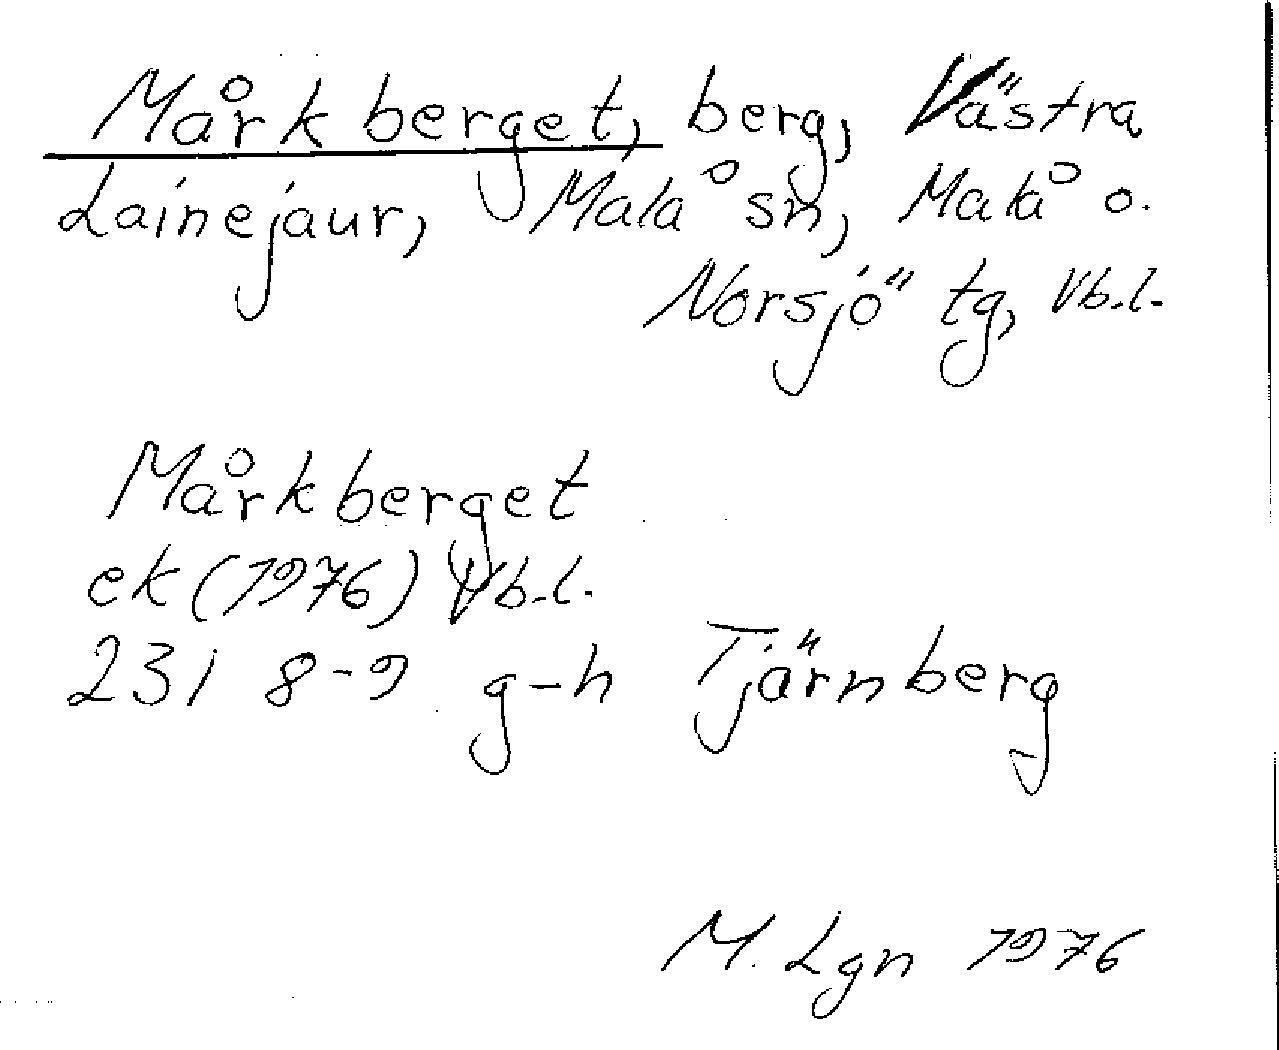 Mårkberget, berg, Västra
Lainejaur, Malå sn, Malå o.
Norsjö tg, Vb.l.
Mårkberget
ek (1976) Vb.l.
23I 8-9 g-h Tjärnberg
M. Lgn 1976